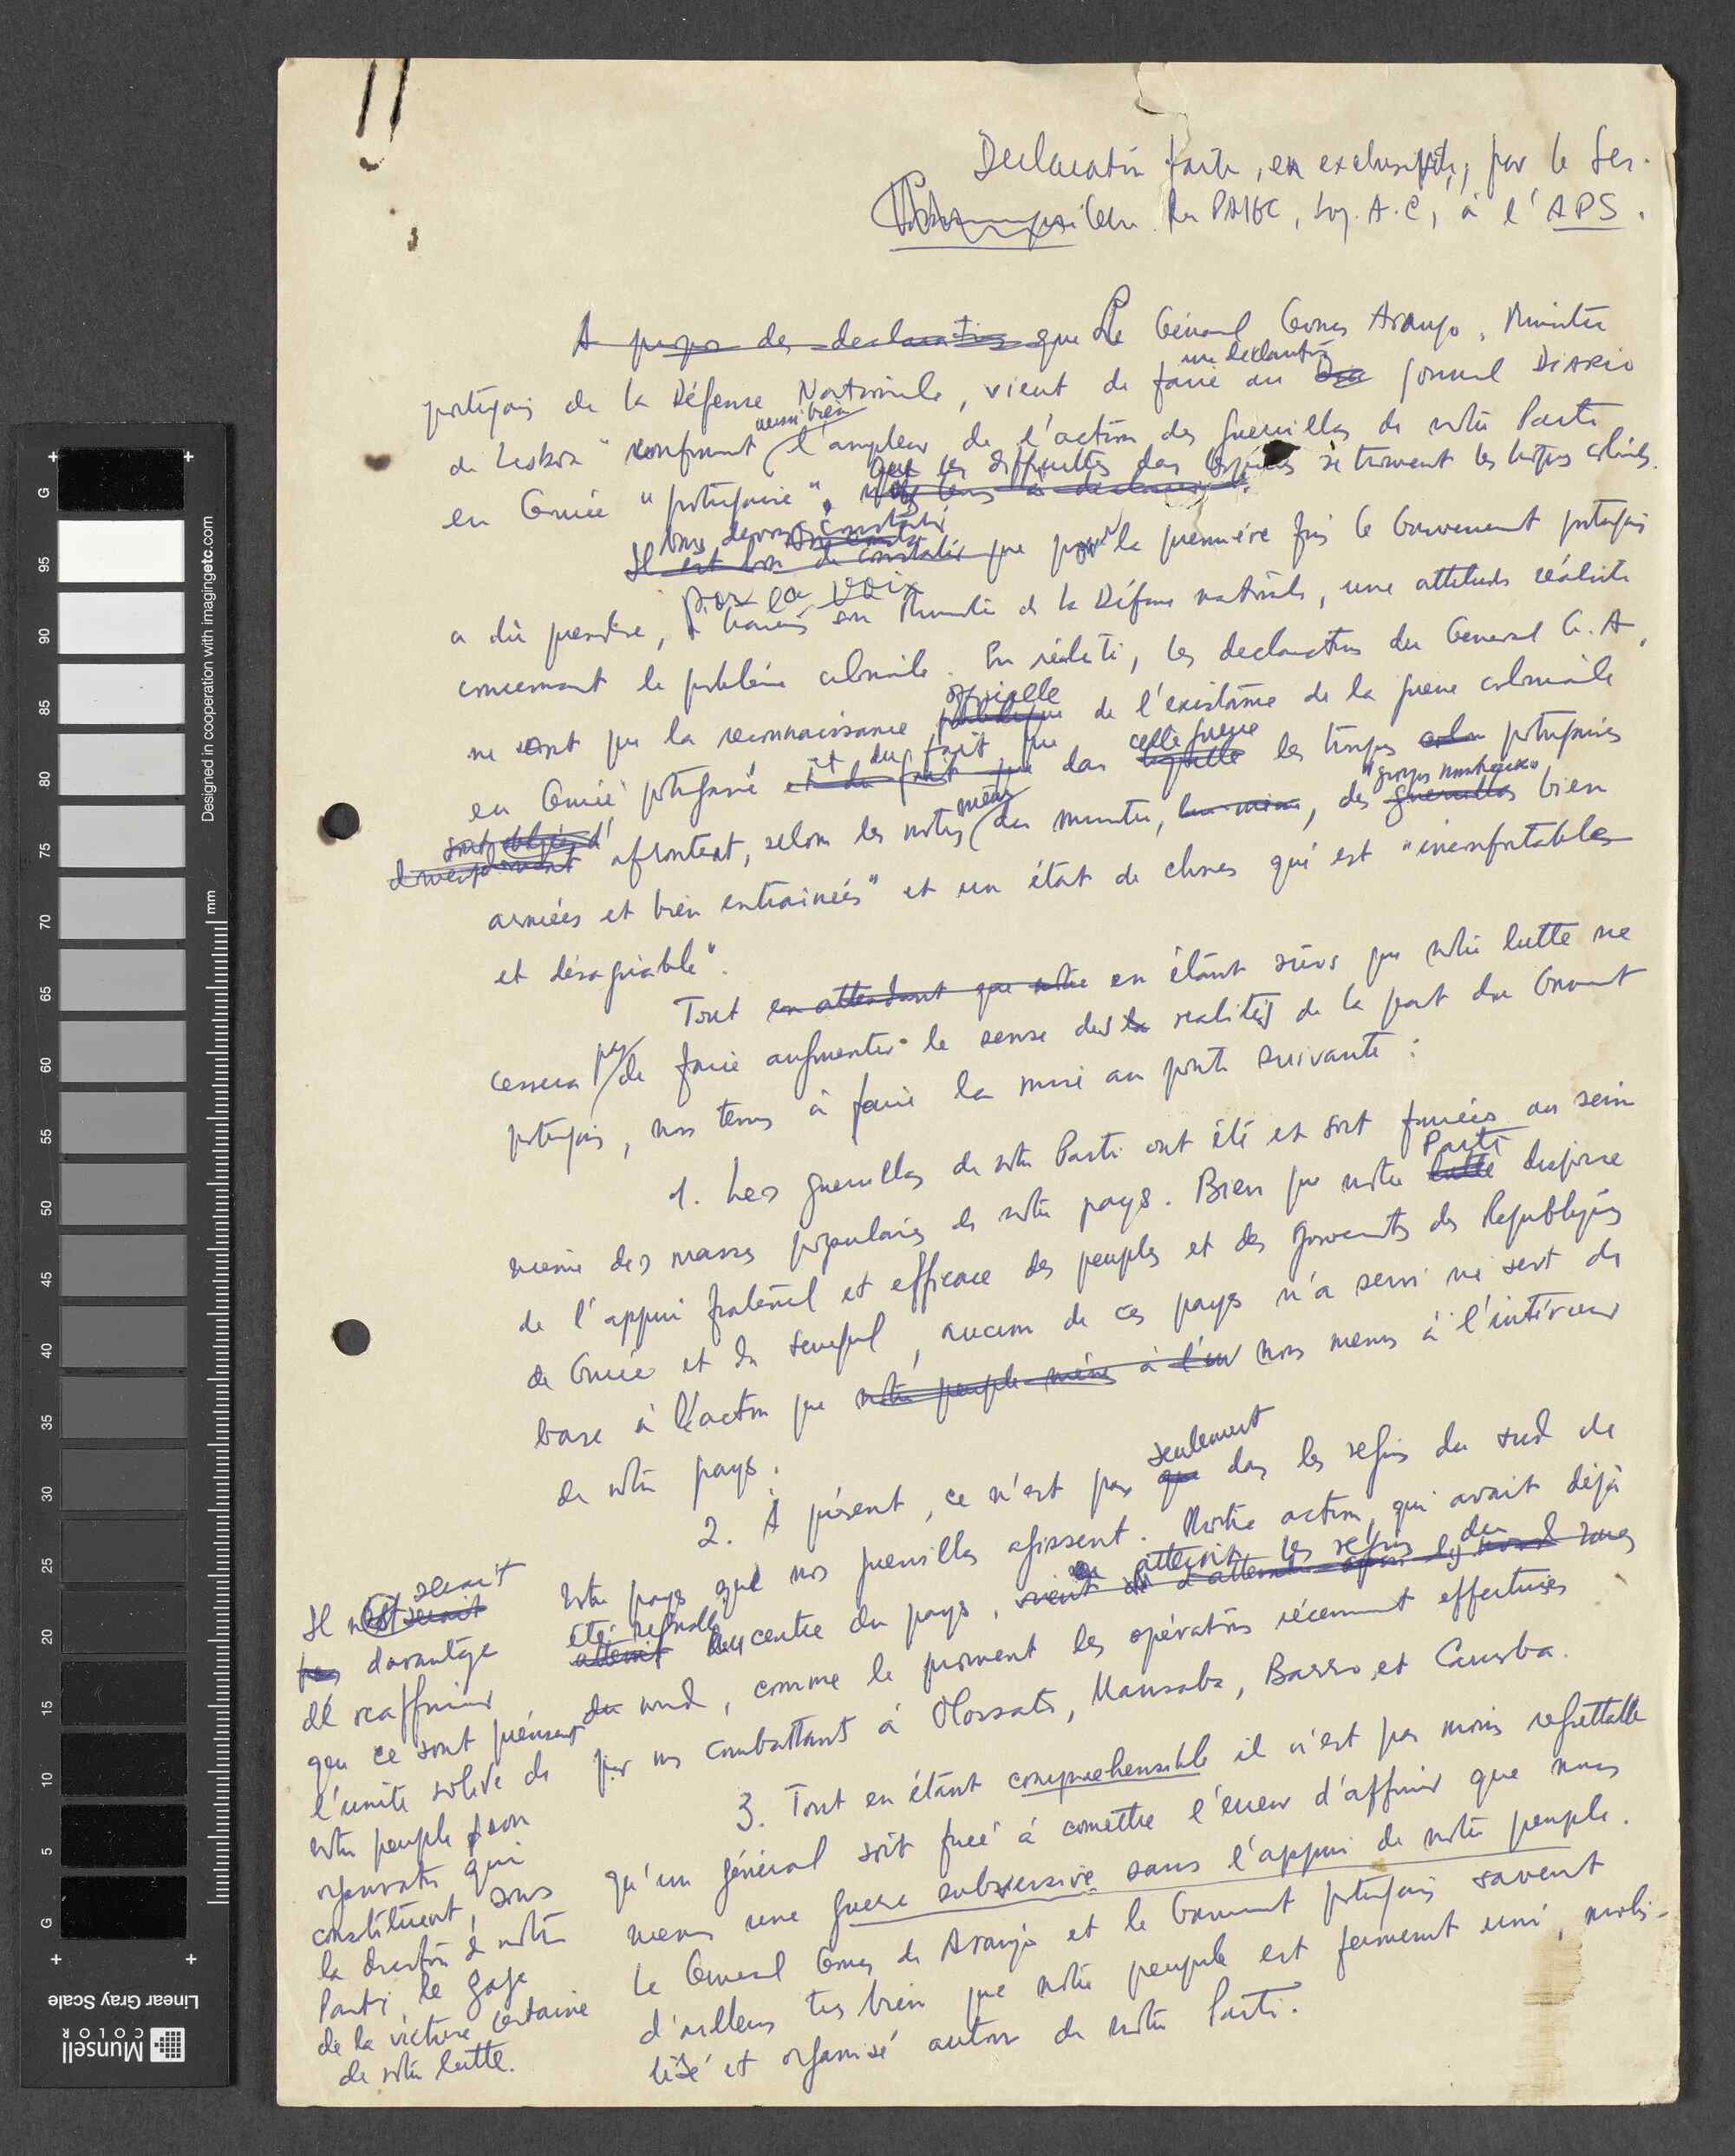 Declaration faite, en exclusivité, par le Ser.
Gen. du PAIGC, Ing. A.C, à l'APS.
A propos des declarations que Le Général Gomes Araujo, Ministre
une declaration
portugais de la Défense Nationale, vient de faire au journal DIARIO
aussi bien
de Lisboa confirment l'ampleur de l'action des guerillas de notre Parti
que les difficultés dans lesquelles se trouvent les troupes colonials.
en Guinée "portugaise",
Nous devons constater
Il est bon de constater que pour la première fois le Gouvernement portugais
par la voix
a dû prendre, à travers son Ministre de la Défense nationale, une attitude réaliste
concernant le problème coloniale. En réalité, les declarations du General G.A,
officielle
ne sont que la reconnaissance publique de l'existence de la guerre coloniale
et du fait que cette guerre
en Guinée portugaise et du fait que dans laquelle les troupes colon portugaises
même "groupes nombreux
sont obligés d'
affrontent, selon les notes du ministre, lui-même, des guerrillas bien
armées et bien entrainées" et un état de choses qui est "inconfortable
et désagréable".
Tout en attendant que notre en étant sûrs que notre lutte ne
pas
cessera de faire augmenter le sense des la realités de la part du Gvnmt
portugais, nous tenons à faire la mise au point suivante :
1. Les guerrillas de notre Parti ont été et sont forcées au sein
Parti
même des masses populaires de notre pays. Bien que notre lutte dispose
de l'appui fraternel et efficace des peuples et des gouvernements des Republiques
de Guinée et du Senegal, aucun de ces pays n'a servi ni sert de
base à l'action que notre peuple même à l'in nous menons à l'intérieur
de notre pays.
seulement
2. À présent, ce n'est pas que dans les regions du sud de
notre pays que nos guerrillas agissent. Notre action, qui avait déjà
atteint les regions du
été signalé
atteint au centre du pays,
du nord, comme le prouvent les opérations récemment effectuées
par nos combattants à Olossato, Mansaba, Barro et Canroba.
3. Tout en étant comprehensible il n'est pas moins regrettable
qu'un général soit forcé à comettre l'erreur d'affirmer que nous
menons une guerre subversive sans l'appui de notre peuple.
Le General Gomes de Araujo et le Gvnmt portugais savent
d'ailleurs très bien que notre peuple est fermement uni, mobi-
lisé et organisé autour de notre Parti.
serait
Il n'est serait
pas davantage
de reaffirmer
que ce sont precisement
l'unité solide de
notre peuple & son
organisation qui
constituent, sous
la direction de notre
Parti, le gage
de la victoire certaine
de notre lutte.
G
95
90
85
80
75
70
65
60
55
50
45
40
35
30
25
20
15
10
5
G
mm
Designed in cooperation with imagingetc.com
Linear Gray Scale
Munsell
COLOR